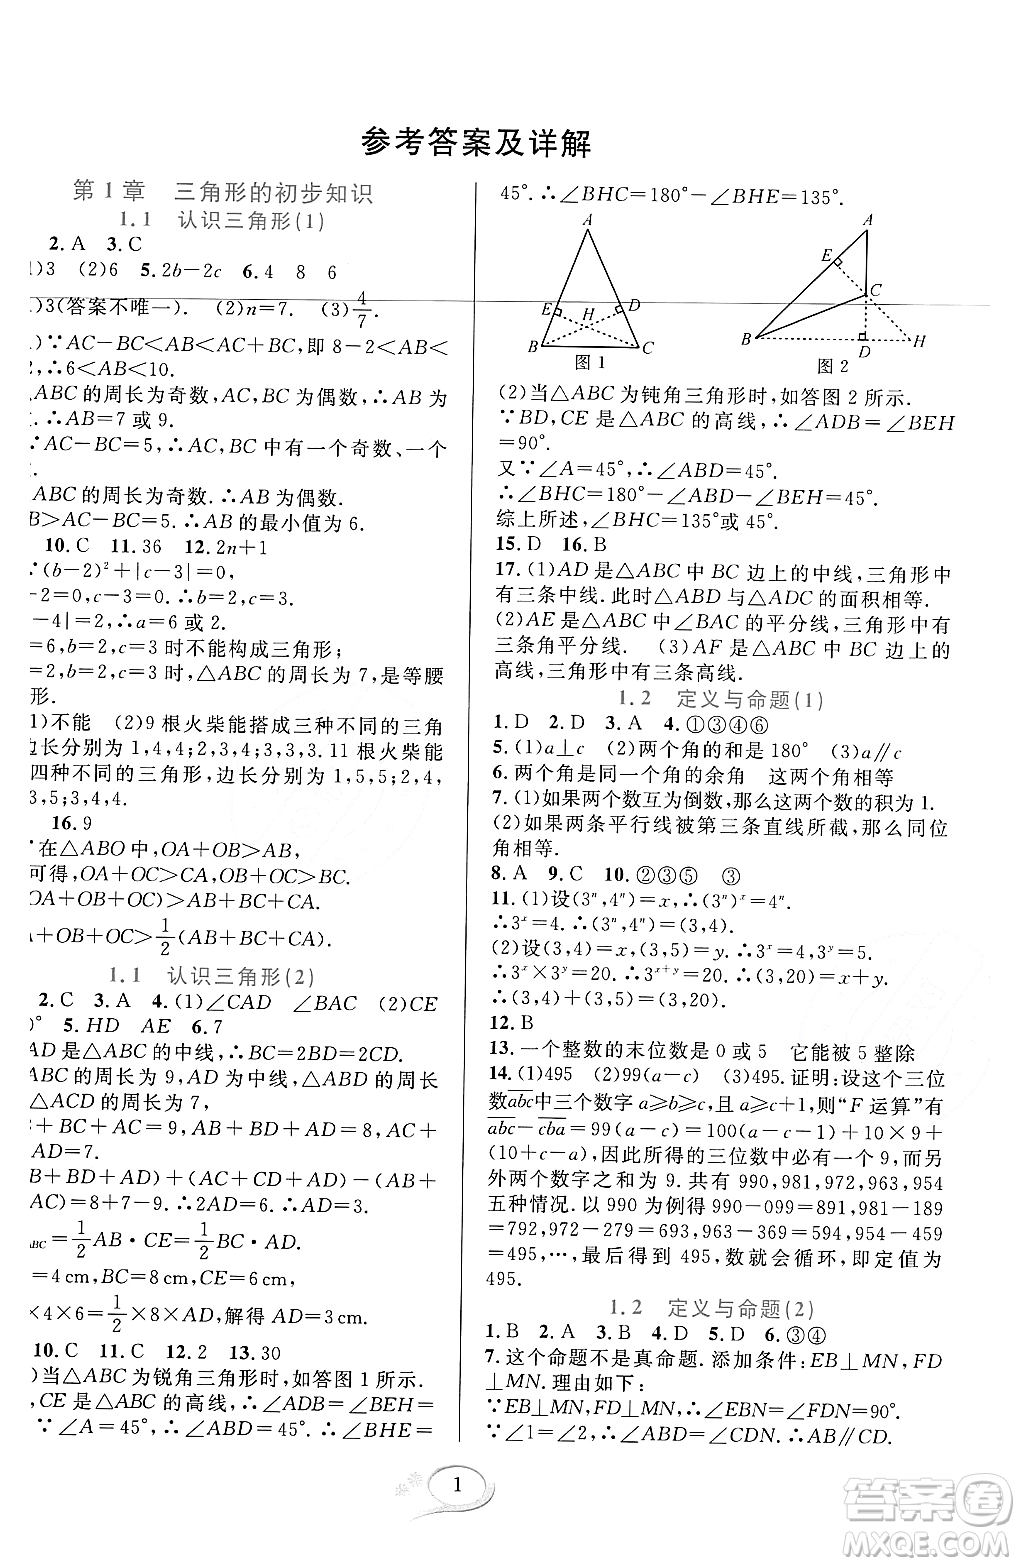 参考答案及详解
第1章 三角形的初步知识
1.1 认识三角形(1)
2.A 3.C
)3 (2)6 5.2b-2c 6.4 8 6
)3(答案不唯一). (2)n=7. (3)4/7.
)∵AC-BC<AB<AC+BC,即8-2<AB<
2,∴6<AB<10.
ABC的周长为奇数,AC,BC为偶数,∴AB为
.∴AB=7或9.
∴AC-BC=5,∴AC,BC中有一个奇数、一个
.
ABC的周长为奇数.∴AB为偶数.
B>AC-BC=5.∴AB的最小值为6.
10.C 11.36 12.2n+1
∵(b-2)²+|c-3|=0,
-2=0,c-3=0,∴b=2,c=3.
-4|=2.∴a=6或2.
=6,b=2,c=3时不能构成三角形;
=2,b=2,c=3时,△ABC的周长为7,是等腰
形.
1)不能 (2)9根火柴能搭成三种不同的三角
边长分别为1,4,4;2,3,4;3,3,3.11根火柴能
四种不同的三角形,边长分别为1,5,5;2,4,
3,5;3,4,4.
16.9
∵在△ABO中,OA+OB>AB,
可得,OA+OC>CA,OB+OC>BC.
OA+OB+OC)>AB+BC+CA.
A+OB+OC>1/2(AB+BC+CA).
1.1 认识三角形(2)
2.C 3.A 4.(1)∠CAD ∠BAC (2)CE
)° 5.HD AE 6.7
AD是△ABC的中线,∴BD=CD.
△ABC的周长为9,AD为中线,△ABD的周长
△ACD的周长为7,
B+BC+AC=9,AB+BD+AD=8,AC+
AD=7.
B+BD+AD)+(AC+CD+AD)=(AB+
AC)=8+7-9.∴2AD=6.∴AD=3.
ABC=1/2AB·CE=1/2BC·AD.
=4cm,BC=8cm,CE=6cm,
×4×6=1/2×8×AD,解得AD=3cm.
10.C 11.C 12.2 13.30
)当△ABC为锐角三角形时,如答图1所示.
,CE是△ABC的高线,∴∠ADB=∠BEH=
∵∠A=45°,∴∠ABD=45°.∴∠BHE=
45°.∴∠BHC=180°-∠BHE=135°.
A
E
H
D
B
C
图1
A
E
C
B
D
H
图2
(2)当△ABC为钝角三角形时,如答图2所示.
∵BD,CE是△ABC的高线,∴∠ADB=∠BEH
=90°.
又∵∠A=45°,∴∠ABD=45°.
∴∠BHC=180°-∠ABD-∠BEH=45°.
综上所述,∠BHC=135°或45°.
15.D 16.B
17.(1)AD是△ABC中BC边上的中线,三角形中
有三条中线.此时△ABD与△ADC的面积相等.
(2)AE是△ABC中∠BAC的平分线,三角形中有
三条角平分线. (3)AF是△ABC中BC边上的
高线,三角形中有三条高线.
1.2 定义与命题(1)
1.D 2.D 3.A 4.①③④⑥
5.(1)a⊥c (2)两个角的和是180° (3)a∥c
6.两个角是同一个角的余角 这两个角相等
7.(1)如果两个数互为倒数,那么这两个数的积为1.
(2)如果两条平行线被第三条直线所截,那么同位
角相等.
8.A 9.C 10.②③⑤ ③
11.(1)设(3ⁿ,4ⁿ)=x,∴(3ⁿ)ˣ=4ⁿ.
∴3ˣ=4.∴(3ⁿ,4ⁿ)=(3,4).
(2)设(3,4)=x,(3,5)=y,∴3ˣ=4,3ʸ=5.
∴3ˣ×3ʸ=20.∴3ˣ⁺ʸ=20.
∴(3,4)+(3,5)=(3,20).
12.B
13.一个整数的末位数是0或5 它能被5整除
14.(1)495 (2)99(a-c) (3)495.证明:设这个三位
数abc中三个数字a≥b≥c,且a≥c+1,则“F运算”有
abc-cba=99(a-c)=100(a-c-1)+10×9+
(10+c-a),因此所得的三位数中必有一个9,而另
外两个数字之和为9.共有990,981,972,963,954
五种情况.以990为例得990-099=891,981-189
=792,972-279=693,963-369=594,954-459
=495,…,最后得到495,数就会循环,即定值为
495.
1.2 定义与命题(2)
1.B 2.D 3.B 4.D 5.D 6.③④
7.这个命题不是真命题.添加条件:EB⊥MN,FD
⊥MN.理由如下:
∵EB⊥MN,FD⊥MN,∴∠EBN=∠FDN=90°.
∵∠1=∠2,∴∠ABN=∠CDN.∴AB∥CD.
1
答案圈
MXQE.COM